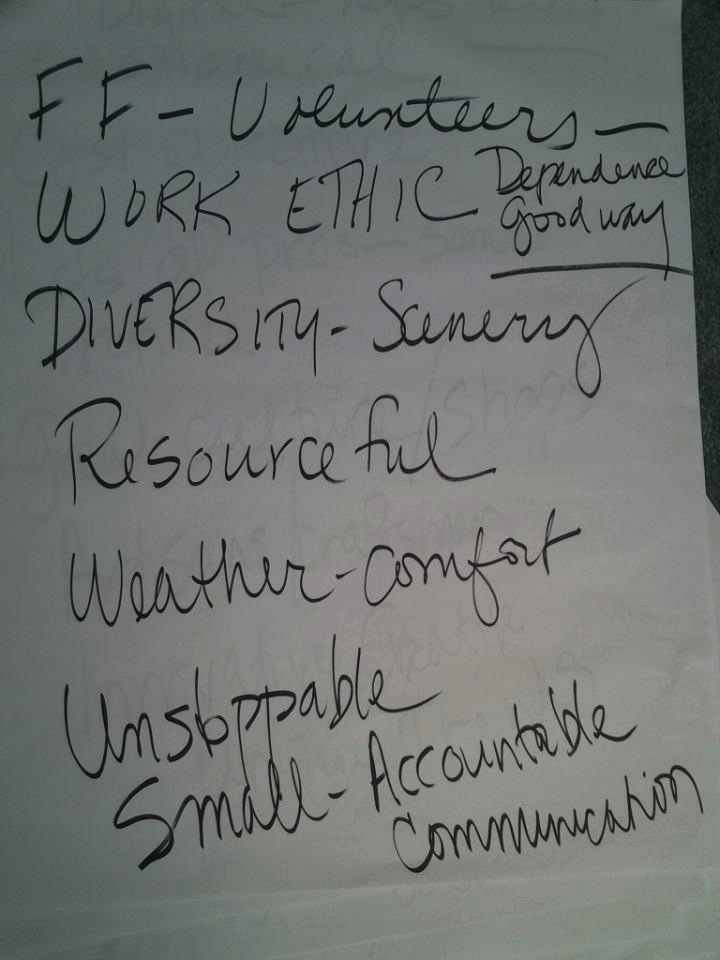 FF - Volunteers -
WORK ETHIC Dependence
Good way
DIVERSITY - Scenery
Resourceful
Weather - Comfort
Unstoppable
Small - Accountable
Communication